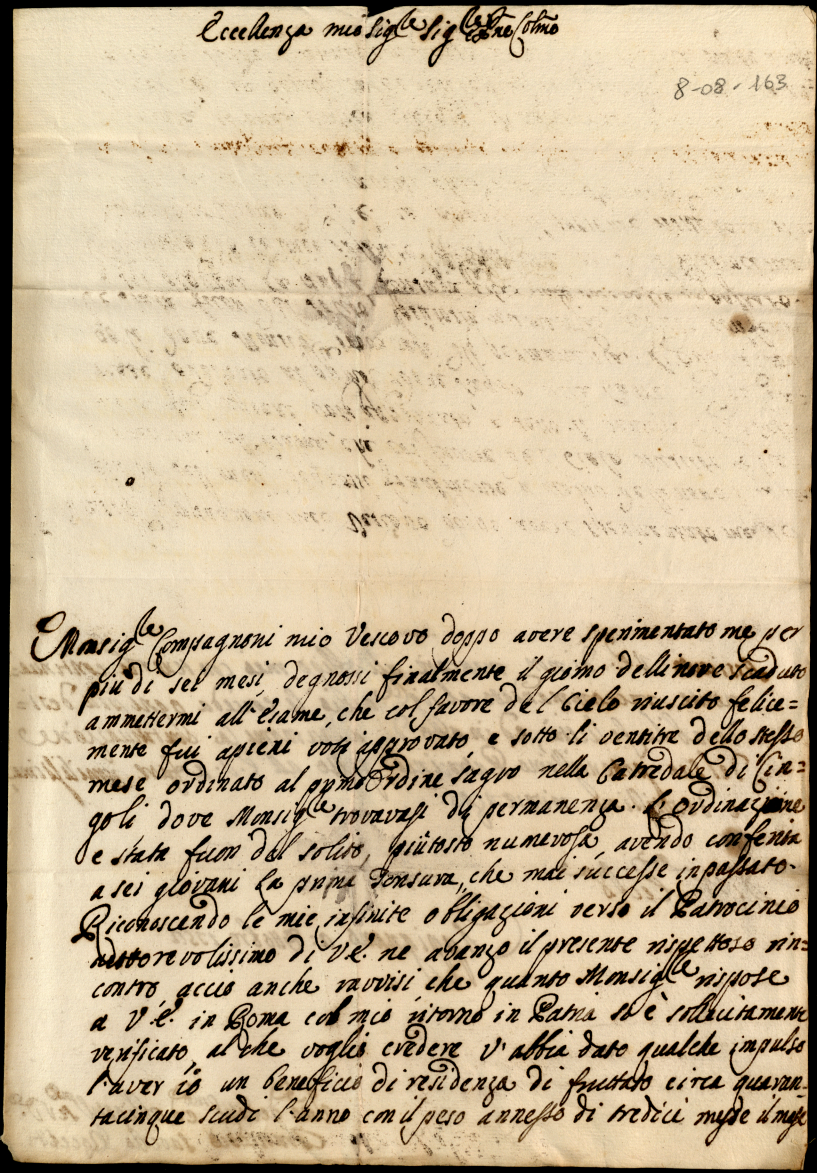 Eccellenza mio Sig.le Sig.le e P͠ne Colmo
8-08-163
Monsig.le Compagnoni mio Vescovo doppo avere sperimentato me per
più di sei mesi, degnossi finalmente il giorno delli nove scaduto
ammettermi all'Esame, che col favore del Cielo riuscito felice=
mente fui apieni voti approvato, e sotto li ventitre dello stesso
mese ordinato al p̃mo Ordine sagro nella Catredale di Cin=
goli dove Monsig.le trovavasi di permanenza. L'Ordinazione
e stata fuori del solito, piùtosto numerosa, avendo conferita
a sei giovani la prima Tonsura, che mai successe inpassato.
Riconoscendo le mie infinite obbligazioni verso il Patrocinio
autorevolissimo di V.E. ne avanzo il presente rispettoso rin=
contro acciò anche ravvisi che quanto Monsig.le rispose
a V.E. in Roma col mio ritorno in Patria si è sollecitamente
verificato, al che voglio credere v'abbia dato qualche impulso
l'aver io un beneficio di residenza di fruttato circa quaran=
tacinque scudi l'anno con il peso annesso di tredici messe il mese